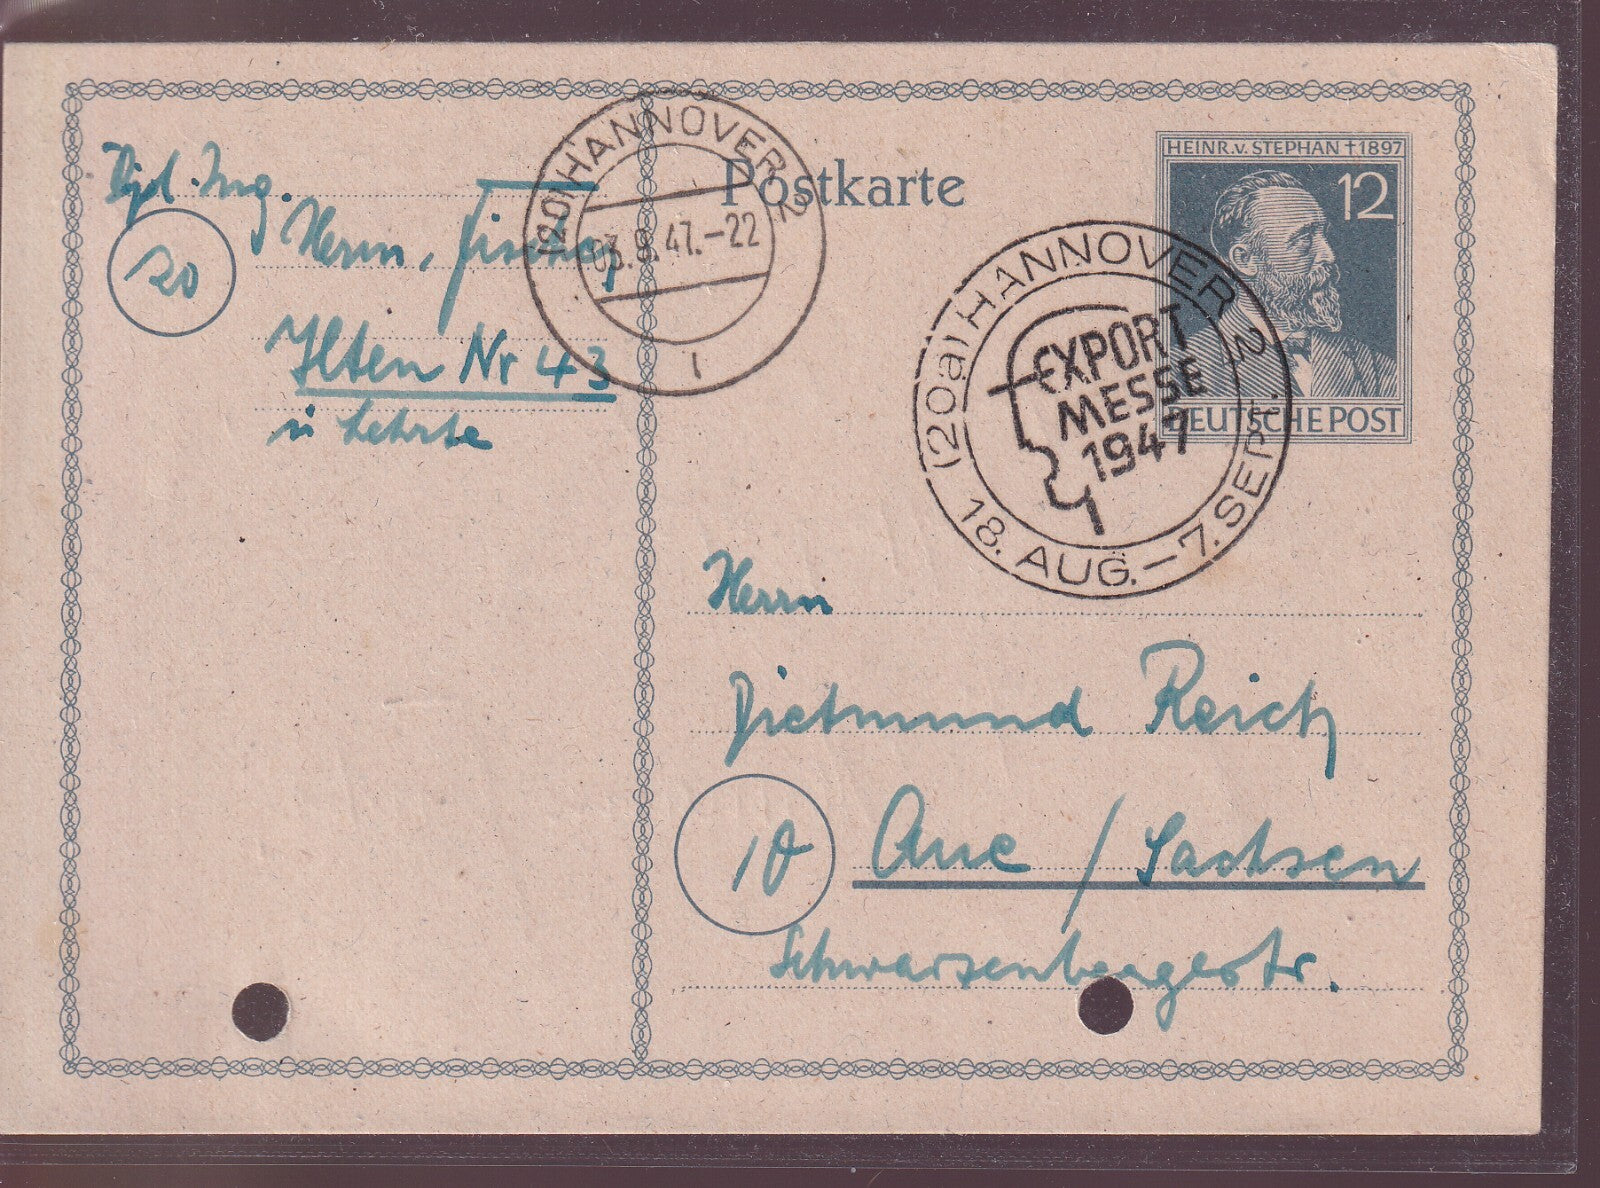 Postkarte
HEINR.v. STEPHAN †1897
12
DEUTSCHE POST
(20) HANNOVER 2
03.9.47.-22
i
(20a) HANNOVER 2
EXPORT
MESSE
1947
18. AUG. – 7. SEPT.
Dipl. Ing.
Herm. Fischer
20
Ilten Nr 43
ü Lehrte
Herrn
Dietmund Reich
10
Aue / Sachsen
Schwarzenbergerstr.